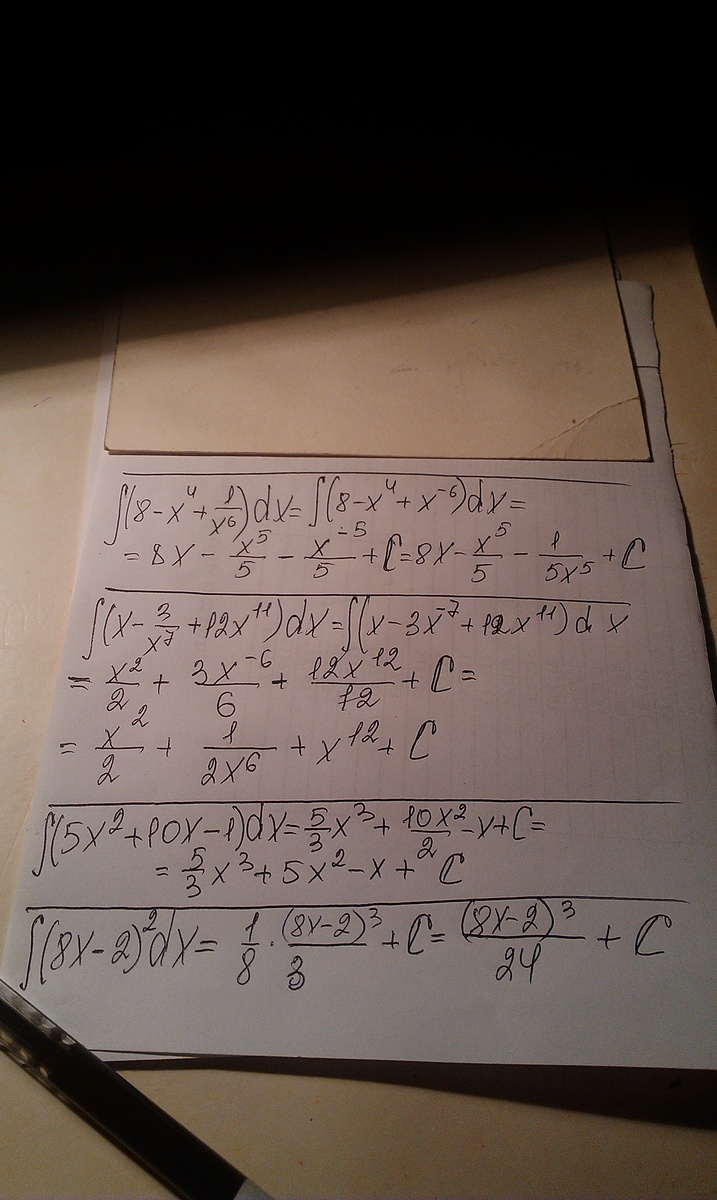 ∫(8-x⁴+1/x⁶)dx=∫(8-x⁴+x⁻⁶)dx=
=8x-x⁵/5-x⁻⁵/5+C=8x-x⁵/5-1/5x⁵+C
∫(x-3/x⁷+12x¹¹)dx=∫(x-3x⁻⁷+12x¹¹)dx
=x²/2+3x⁻⁶/6+12x¹²/12+C=
=x²/2+1/2x⁶+x¹²+C
∫(5x²+10x-1)dx=5/3x³+10x²/2-x+C=
=5/3x³+5x²-x+C
∫(8x-2)²dx=1/8·(8x-2)³/3+C=(8x-2)³/24+C